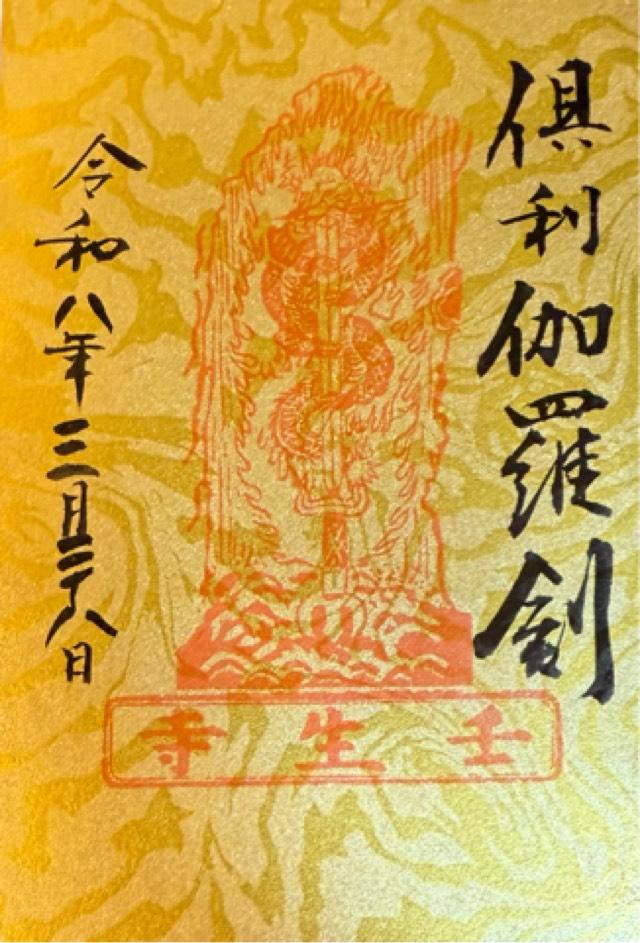 俱利伽羅剣
令和八年三月二十八日
壬生寺